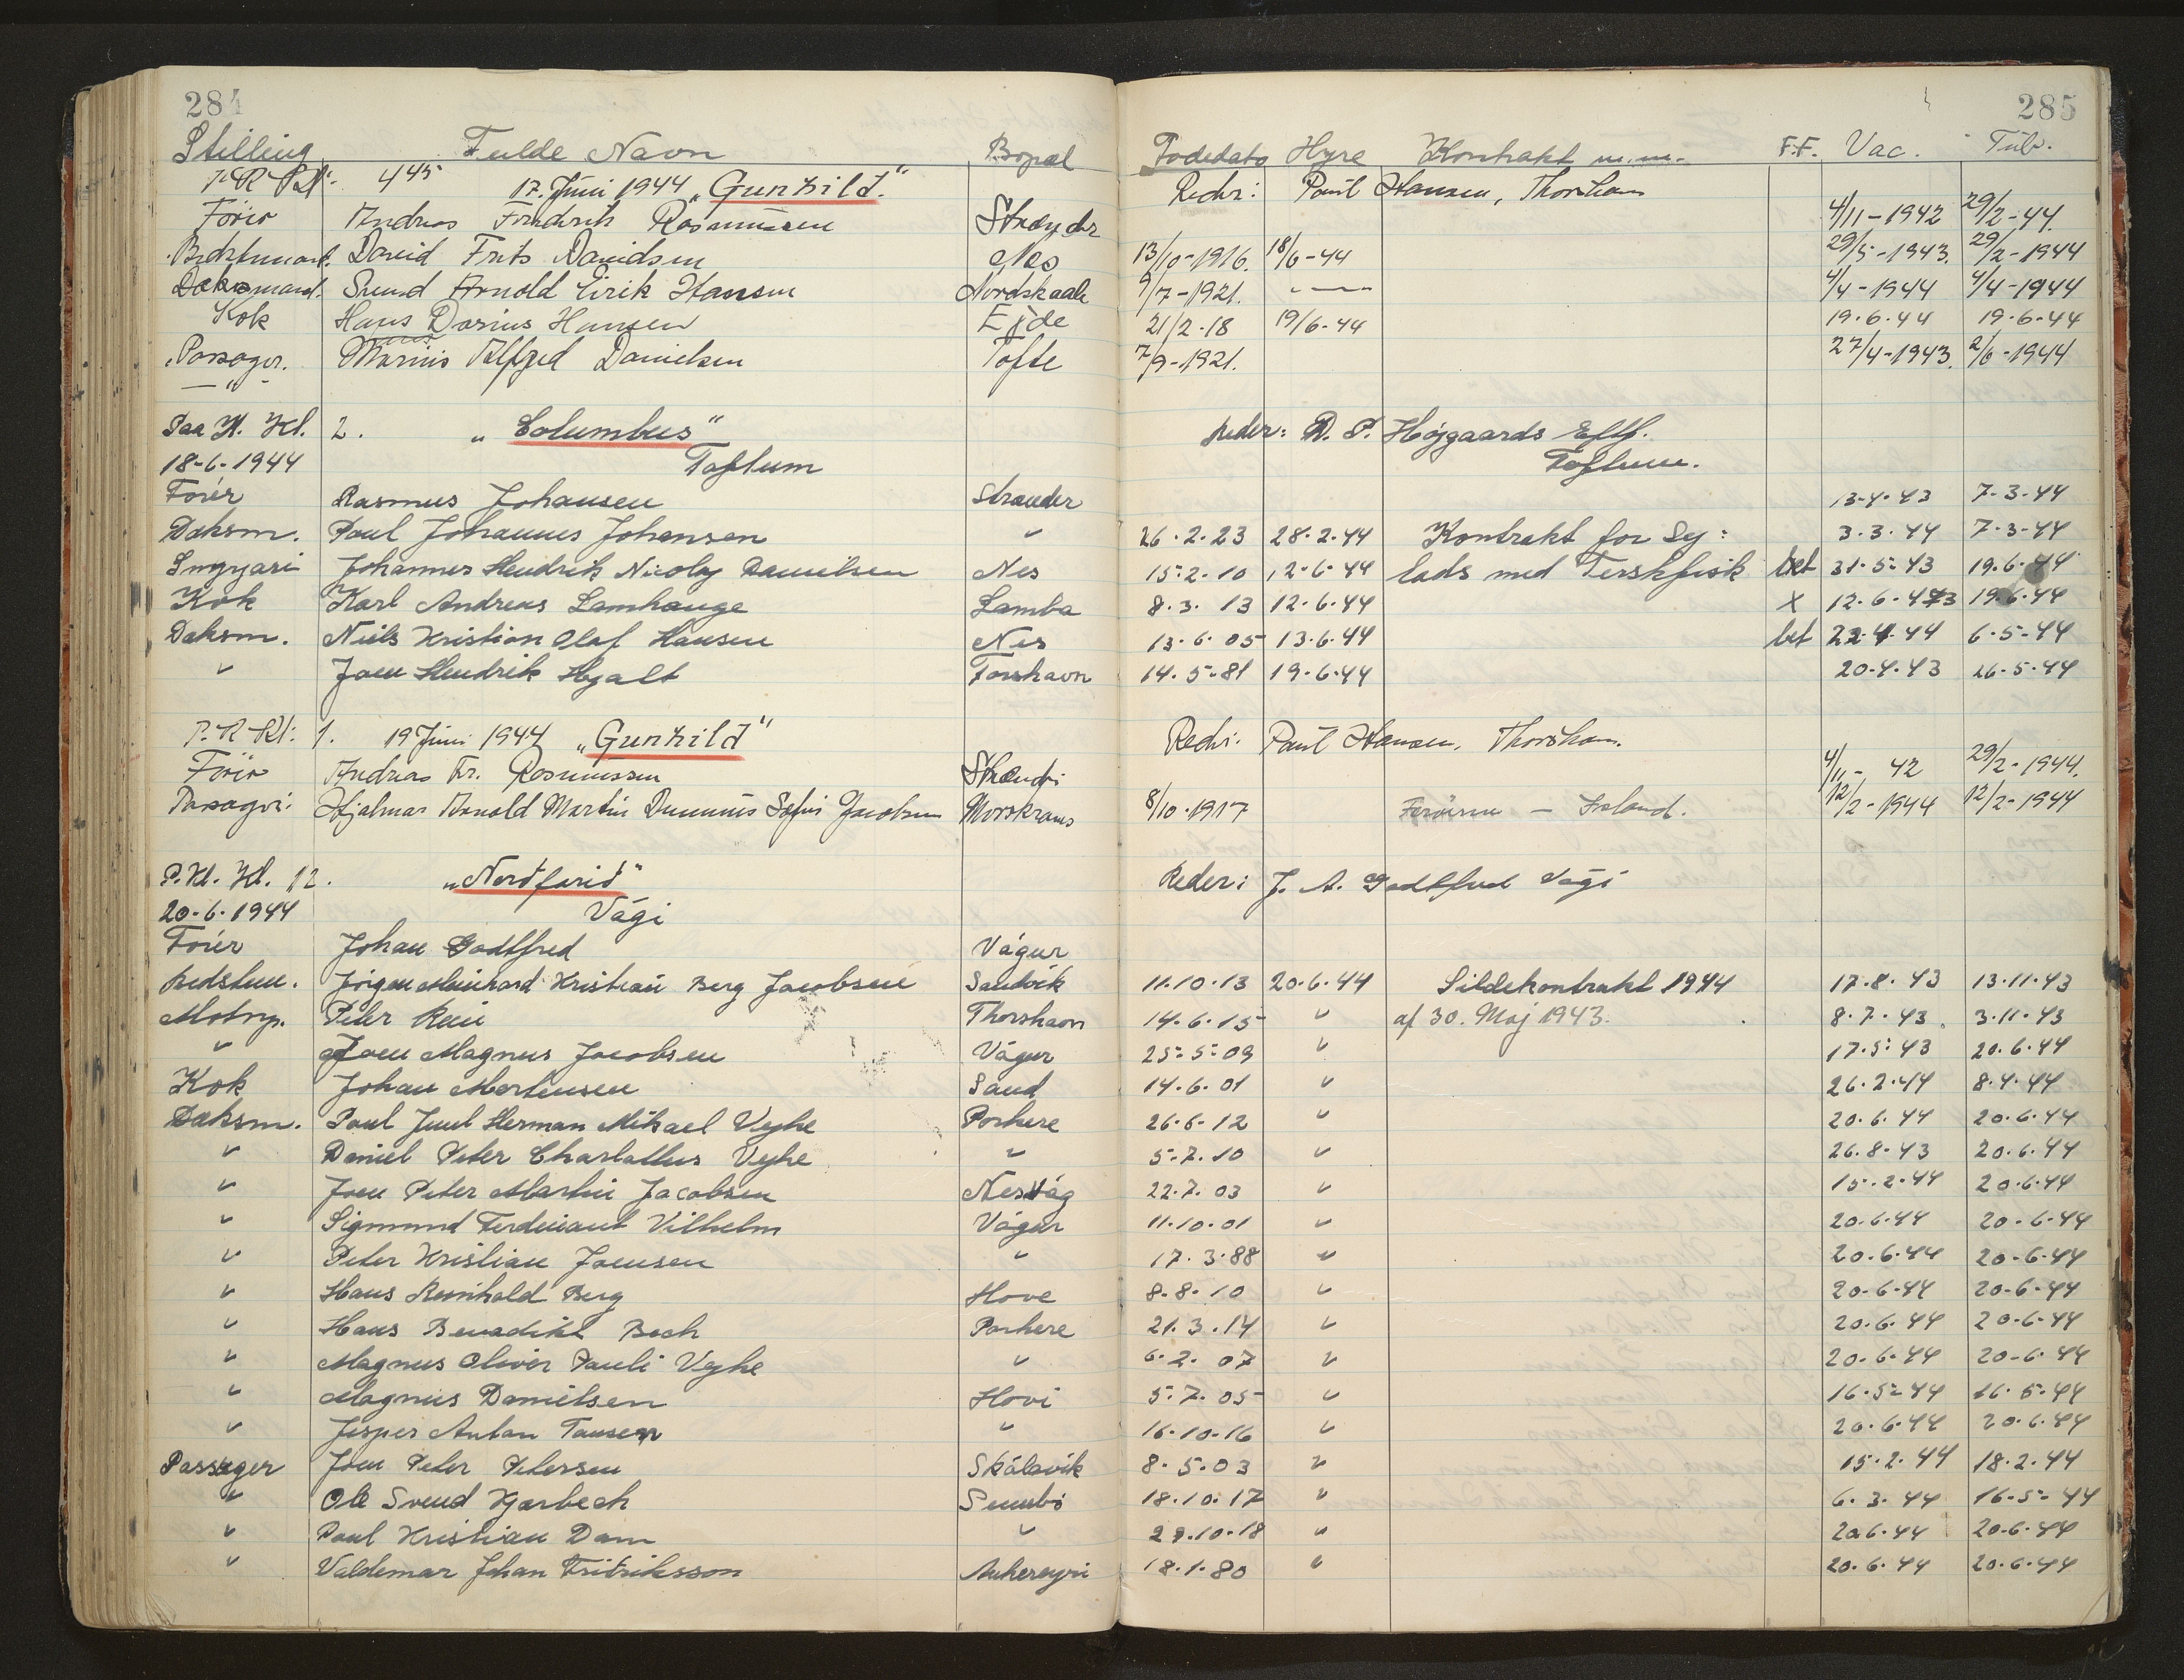 284 285
Stilling Fulde Navn Bopæl Fødedato Hyre Kontrakt m.m. F.F. Vac. Tub.
17. Juni 1944 "Gunhild." Reder: Paul Hansen, Thorshavn
Förer Andreas Fredrik Rasmussen Strænder 4/11-1942 29/2-44.
Bedstemand. David Frits Davidsen Nes 13/10-1916. 18/6-44 29/5-1943. 29/2-1944
Daksmand. Svend Arnold Eirik Hansen Nordskaale 9/7-1921. -"- 4/4-1944 4/4-1944
Kok Hans Darius Hansen Ejde 21/2-18 19/6-44 19.6.44 19.6.44
Passager. Marius Alfred Danielsen Tofte 7/9-1921. 27/4-1943. 2/6-1944
-"-
Paa Kl. Kl. 2. "Columbus" Reder: D. P. Højgaards Eftf.
18-6-1944 Toftum Toftum.
Förer Rasmus Johansen Strander 13-4-43 7-3-44
Daksm. Paul Johannes Johansen " 26.2.23 28.2.44 Kontrakt for Sej: 3.3.44 7-3-44
Johannes Hendrik Nicolaj Danielsen Nes 15.2.10 12.6.44 lads med Ferskfisk bet 31.5.43 19.6.44
Kok Karl Andreas Lamhauge Lamba 8.3.13 12.6.44 x 12.6.43 19.6.44
Daksm. Niels Kristian Olaf Hansen Nes 13.6.05 13.6.44 bet 22.4.44 6-5-44
" Joen Hendrik Hjalt Torshavn 14.5.81 19.6.44 20.4.43 26.5.44
P. R Kl: 1. 19 Juni 1944 "Gunhild" Reder: Paul Hansen, Thorshavn.
Förer Andreas Fr. Rasmussen Strændri 4/11- 42 29/2-1944.
Passager: Hjalmar Arnold Martin Jacobsen Morskranes 8/10-1917 Færöerne - Island. 12/2-1944 12/2-1944
P. Kl. Kl. 12. "Nordfarid" Reder: J. A. Godtfred Vági
20-6-1944 Vági
Förer Johan Godtfred Vágur
Bedstem. Jörgen Meinhard Kristian Berg Jacobsen Sandvik 11.10.13 20.6.44 Sildekontrakt 1944 17.8.43 13.11.43
Motrp. Peter Rein Thorshavn 14.6.15 " af 30. Maj 1943. 8.7.43 3.11.43
" Joen Magnus Jacobsen Vágur 25.5.09 " 17.5.43 20.6.44
Kok Johan Mortensen Sand 14.6.01 " 26.2.44 8.4.44
Daksm. Poul Juul Herman Mikael Vejhe Porkere 26.6.12 " 20.6.44 20.6.44
" Daniel Peter Charlattus Vejhe " 5.7.10 " 26.8.43 20.6.44
" Joen Peter Martin Jacobsen Nesvág 22.7.03 " 15.2.44 20.6.44
" Sigmund Ferdinant Vilhelm Vágur 11.10.01 " 20.6.44 20-6-44
" Peter Kristian Joensen " 17.3.88 " 20.6.44 20-6-44
" Hans Reinhold Berg Hove 8.8.10 " 20-6-44 20-6-44
" Hans Benadikt Bech Porkere 21.3.14 " 20.6.44 20-6-44
" Magnus Oliver Pauli Vejhe " 6.2.07 " 20-6-44 20-6-44
" Magnus Danielsen Hovi 5.7.05 " 16.5-44 16.5.44
" Jesper Anton Tausen " 16-10-16 " 20.6.44 20.6.44
Passager Joen Peter Petersen Skálavik 8.5.03 " 15.2.44 18.2.44
" Ole Svend Kjærbech Sumbö 18.10.17 " 6.3.44 16-5-44
" Poul Kristian Dam " 27.10.18 " 20.6.44 20-6-44
" Valdemar Johan Fritriksson Aukereyri 18.1.80 " 20.6.44 20.6.44